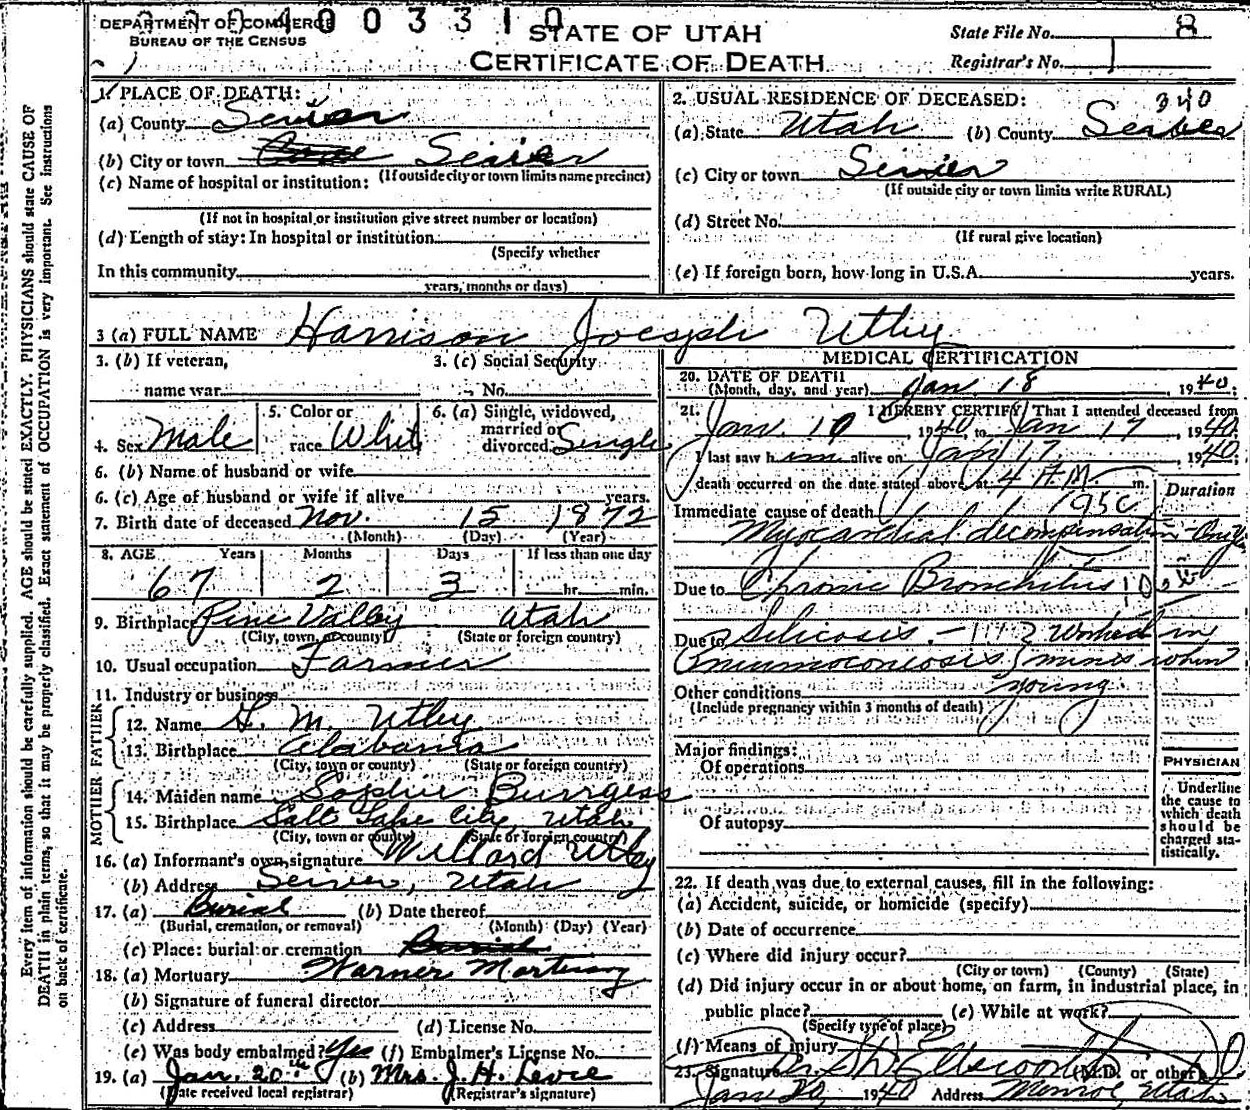 DEPARTMENT OF COMMERCE
BUREAU OF THE CENSUS
4003310
STATE OF UTAH
CERTIFICATE OF DEATH
State File No. 8
Registrar's No. 1
Every item of information should be carefully supplied. AGE should be stated EXACTLY. PHYSICIANS should state CAUSE OF
DEATH in plain terms, so that it may be properly classified. Exact statement of OCCUPATION is very important. See instructions
on back of certificate.
1. PLACE OF DEATH:
(a) County Sevier
(b) City or town Sevier
(If outside city or town limits name precinct)
(c) Name of hospital or institution:
(If not in hospital or institution give street number or location)
(d) Length of stay: In hospital or institution
(Specify whether
In this community
years, months or days)
2. USUAL RESIDENCE OF DECEASED: 340
(a) State Utah (b) County Sevier
(c) City or town Sevier
(If outside city or town limits write RURAL)
(d) Street No.
(If rural give location)
(e) If foreign born, how long in U.S.A. years.
3 (a) FULL NAME Harrison Joesph Utley
3. (b) If veteran, 3. (c) Social Security
name war No.
4. Sex Male 5. Color or race Whit 6. (a) Single, widowed, married or divorced Single
6. (b) Name of husband or wife
6. (c) Age of husband or wife if alive years.
7. Birth date of deceased Nov. 15 1872
(Month) (Day) (Year)
8. AGE Years Months Days If less than one day
67 2 3 hr. min.
9. Birthplace Pine Valley Utah
(City, town, or county) (State or foreign country)
10. Usual occupation Farmer
11. Industry or business
FATHER
12. Name M. Utley
13. Birthplace Alabama
(City, town or county) (State or foreign country)
MOTHER
14. Maiden name Sophie Burrgess
15. Birthplace Salt Lake City, Utah
(City, town or county) (State or foreign country)
16. (a) Informant's own signature Willard Utley
(b) Address Seiver, Utah
17. (a) Burial (b) Date thereof
(Burial, cremation, or removal) (Month) (Day) (Year)
(c) Place: burial or cremation Burial
18. (a) Mortuary Warner Mortuary
(b) Signature of funeral director
(c) Address (d) License No.
(e) Was body embalmed? Yes (f) Embalmer's License No.
19. (a) Jan. 20th (b) Mrs. J. H. Levie
(Date received local registrar) (Registrar's signature)
MEDICAL CERTIFICATION
20. DATE OF DEATH
(Month, day, and year) Jan. 18, 1940;
21. I HEREBY CERTIFY, That I attended deceased from
Jan. 10, 1940, to Jan 17, 1940.
I last saw him alive on Jan 17, 1940;
death occurred on the date stated above, at 4 A.M. m.
Duration
Immediate cause of death
Myocardial decompensation
Due to Chronic Bronchitus
Due to Silicosis. - worked in
Pneumoconiosis mines when
young
Other conditions
(Include pregnancy within 3 months of death)
Major findings:
Of operations
Of autopsy
PHYSICIAN
Underline
the cause to
which death
should be
charged sta-
tistically.
22. If death was due to external causes, fill in the following:
(a) Accident, suicide, or homicide (specify)
(b) Date of occurrence
(c) Where did injury occur?
(City or town) (County) (State)
(d) Did injury occur in or about home, on farm, in industrial place, in
public place? (e) While at work?
(Specify type of place)
(f) Means of injury
23. Signature Ellsworth (M.D. or other)
Jan 20, 1940 Address Monroe, Utah